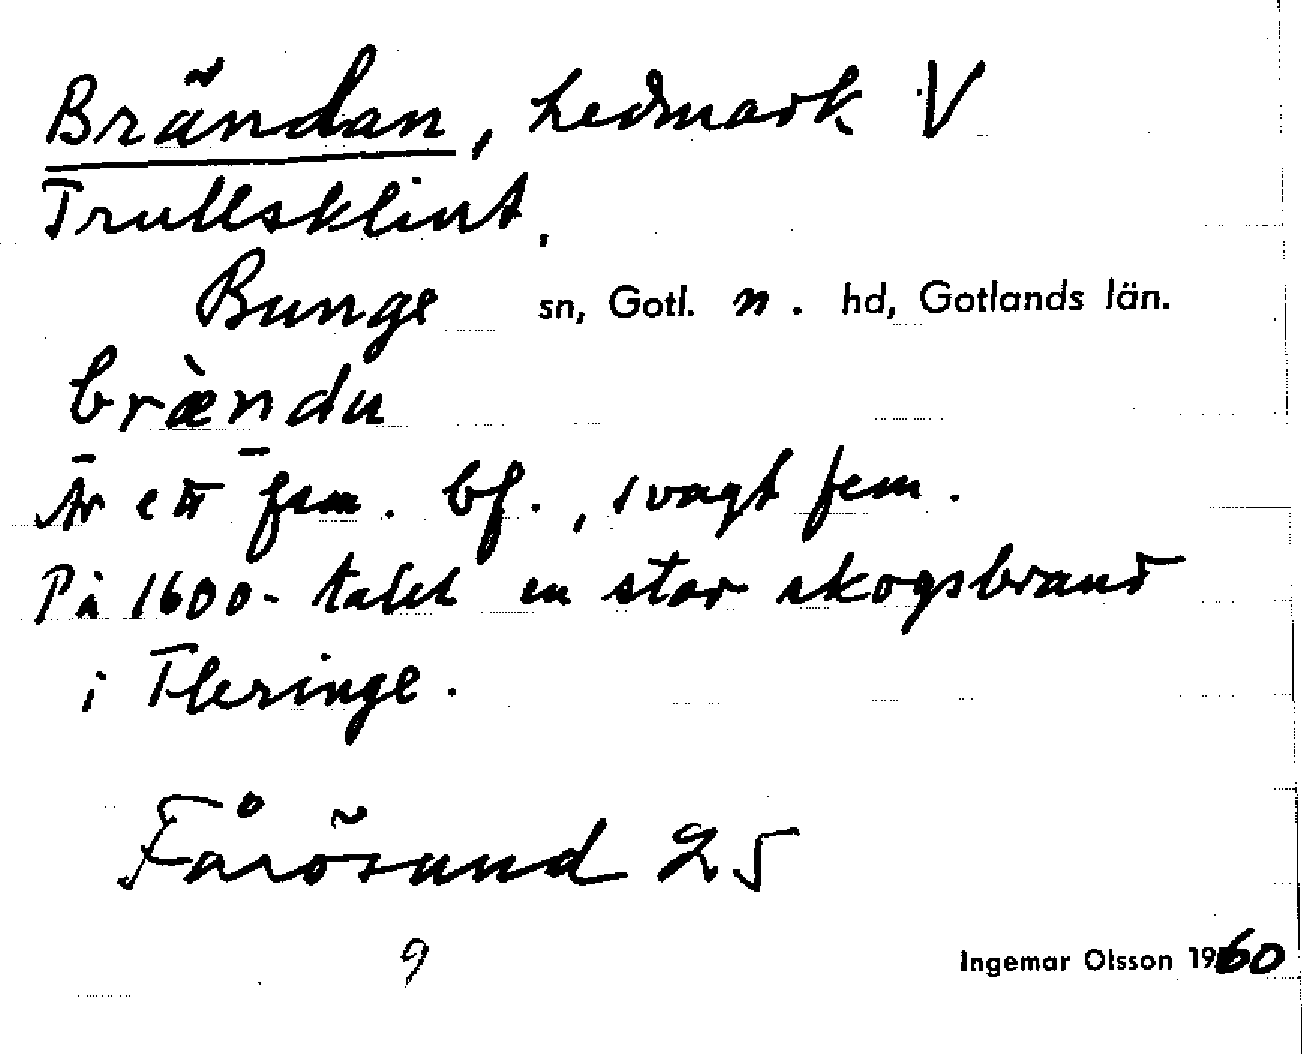 Brändan, hedmark V
Trullsklint.
Bunge sn, Gotl. n. hd, Gotlands län.
brænda
Är ett fem. bf., svagt fem.
På 1600-talet en stor skogsbrand
i Fleringe.
Fårösund 25
9
Ingemar Olsson 1960